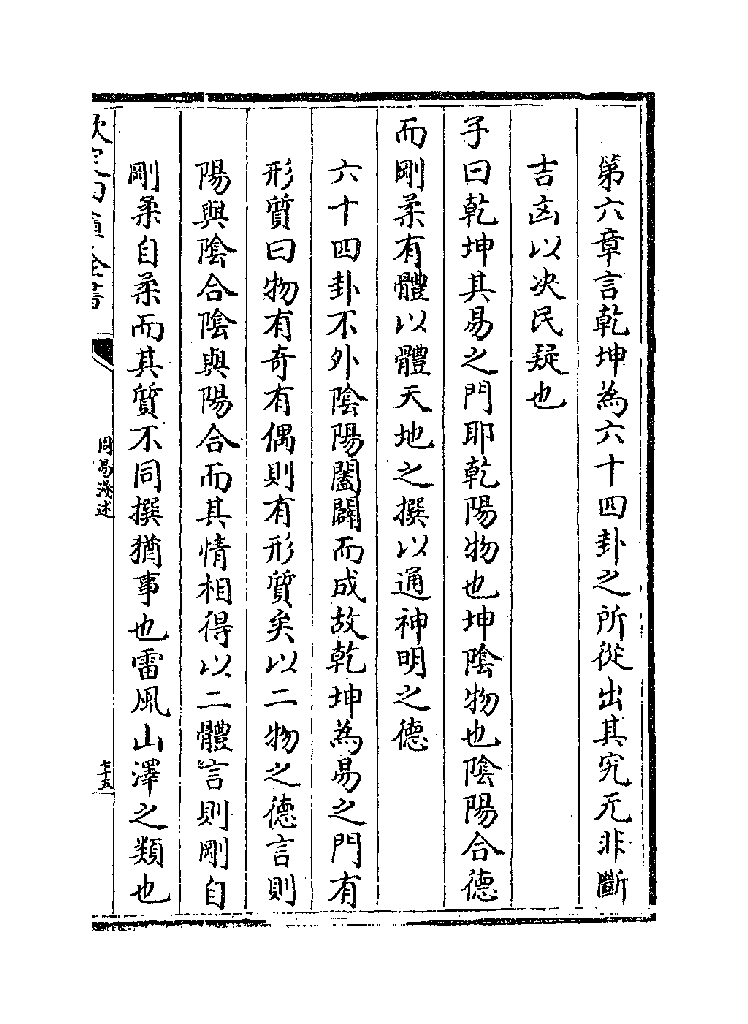 第六章言乾坤為六十四卦之所從出其究无非斷
吉凶以决民疑也
子曰乾坤其易之門耶乾陽物也坤陰物也陰陽合德
而剛柔有體以體天地之撰以通神明之德
六十四卦不外陰陽闔闢而成故乾坤為易之門有
形質曰物有奇有偶則有形質矣以二物之德言則
陽與陰合陰與陽合而其情相得以二體言則剛自
剛柔自柔而其質不同撰猶事也雷風山澤之類也
欽定四庫全書
周易淺述
七十五